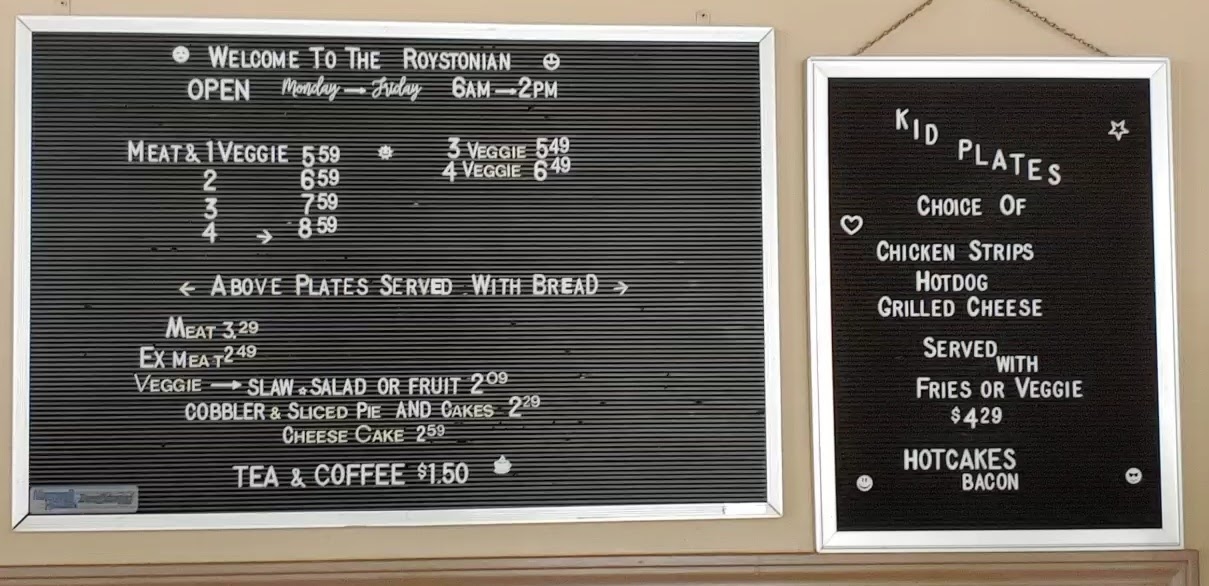 WELCOME TO THE ROYSTONIAN
OPEN Monday → Friday 6AM → 2PM
MEAT & 1 VEGGIE 5 59
2 6 59
3 7 59
4 → 8 59
3 VEGGIE 5 49
4 VEGGIE 6 49
← ABOVE PLATES SERVED WITH BREAD →
MEAT 3.29
EX MEAT 2 49
VEGGIE → SLAW SALAD OR FRUIT 2 09
COBBLER & SLICED PIE AND CAKES 2 29
CHEESE CAKE 2 59
TEA & COFFEE $1.50
KID PLATES
CHOICE OF
CHICKEN STRIPS
HOTDOG
GRILLED CHEESE
SERVED
WITH
FRIES OR VEGGIE
$4 29
HOTCAKES
BACON